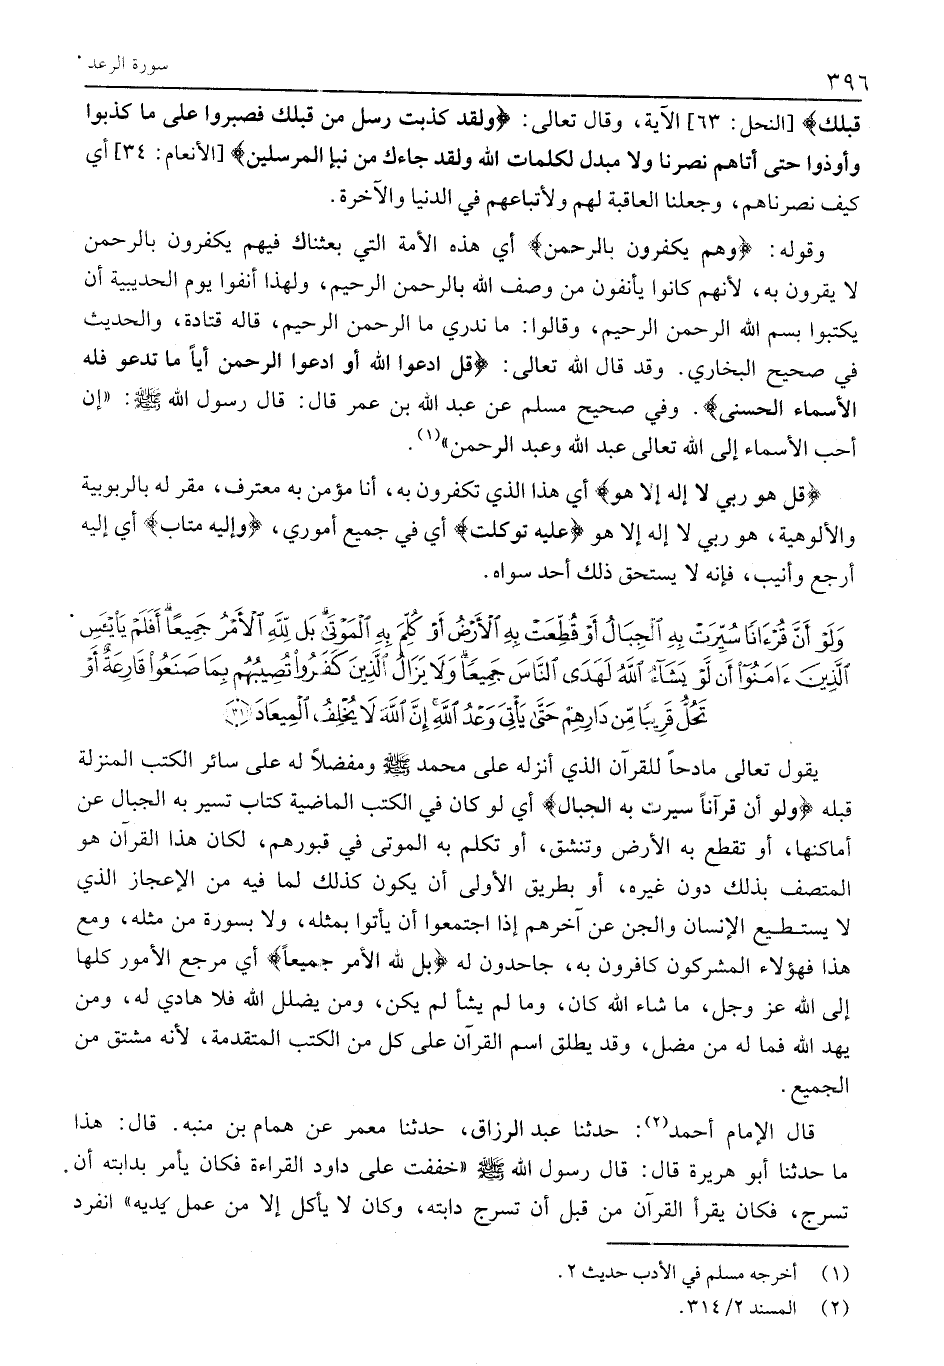 سورة الرعد
٣٩٦
قبلك﴾ [النحل: ٦٣] الآية، وقال تعالى: ﴿ولقد كذبت رسل من قبلك فصبروا على ما كذبوا
وأوذوا حتى أتاهم نصرنا ولا مبدل لكلمات الله ولقد جاءك من نبإ المرسلين﴾ [الأنعام: ٣٤] أي
كيف نصرناهم، وجعلنا العاقبة لهم ولأتباعهم في الدنيا والآخرة.
وقوله: ﴿وهم يكفرون بالرحمن﴾ أي هذه الأمة التي بعثناك فيهم يكفرون بالرحمن
لا يقرون به، لأنهم كانوا يأنفون من وصف الله بالرحمن الرحيم، ولهذا أنفوا يوم الحديبية أن
يكتبوا بسم الله الرحمن الرحيم، وقالوا: ما ندري ما الرحمن الرحيم، قاله قتادة، والحديث
في صحيح البخاري. وقد قال الله تعالى: ﴿قل ادعوا الله أو ادعوا الرحمن أياً ما تدعو فله
الأسماء الحسنى﴾. وفي صحيح مسلم عن عبد الله بن عمر قال: قال رسول الله ﷺ: «إن
أحب الأسماء إلى الله تعالى عبد الله وعبد الرحمن»(١).
﴿قل هو ربي لا إله إلا هو﴾ أي هذا الذي تكفرون به، أنا مؤمن به معترف، مقر له بالربوبية
والألوهية، هو ربي لا إله إلا هو ﴿عليه توكلت﴾ أي في جميع أموري، ﴿وإليه متاب﴾ أي إليه
أرجع وأنيب، فإنه لا يستحق ذلك أحد سواه.
وَلَوْ أَنَّ قُرْءَانًا سُيِّرَتْ بِهِ ٱلْجِبَالُ أَوْ قُطِّعَتْ بِهِ ٱلْأَرْضُ أَوْ كُلِّمَ بِهِ ٱلْمَوْتَىٰۗ بَل لِّلَّهِ ٱلْأَمْرُ جَمِيعًاۗ أَفَلَمْ يَا۟يْـَٔسِ
ٱلَّذِينَ ءَامَنُوٓا۟ أَن لَّوْ يَشَآءُ ٱللَّهُ لَهَدَى ٱلنَّاسَ جَمِيعًاۗ وَلَا يَزَالُ ٱلَّذِينَ كَفَرُوا۟ تُصِيبُهُم بِمَا صَنَعُوا۟ قَارِعَةٌ أَوْ
تَحُلُّ قَرِيبًا مِّن دَارِهِمْ حَتَّىٰ يَأْتِىَ وَعْدُ ٱللَّهِۚ إِنَّ ٱللَّهَ لَا يُخْلِفُ ٱلْمِيعَادَ ﴿٣١﴾
يقول تعالى مادحاً للقرآن الذي أنزله على محمد ﷺ ومفضلاً له على سائر الكتب المنزلة
قبله ﴿ولو أن قرآناً سيرت به الجبال﴾ أي لو كان في الكتب الماضية كتاب تسير به الجبال عن
أماكنها، أو تقطع به الأرض وتنشق، أو تكلم به الموتى في قبورهم، لكان هذا القرآن هو
المتصف بذلك دون غيره، أو بطريق الأولى أن يكون كذلك لما فيه من الإعجاز الذي
لا يستطيع الإنسان والجن عن آخرهم إذا اجتمعوا أن يأتوا بمثله، ولا بسورة من مثله، ومع
هذا فهؤلاء المشركون كافرون به، جاحدون له ﴿بل لله الأمر جميعاً﴾ أي مرجع الأمور كلها
إلى الله عز وجل، ما شاء الله كان، وما لم يشأ لم يكن، ومن يضلل الله فلا هادي له، ومن
يهد الله فما له من مضل، وقد يطلق اسم القرآن على كل من الكتب المتقدمة، لأنه مشتق من
الجميع.
قال الإمام أحمد(٢): حدثنا عبد الرزاق، حدثنا معمر عن همام بن منبه. قال: هذا
ما حدثنا أبو هريرة قال: قال رسول الله ﷺ «خففت على داود القراءة فكان يأمر بدابته أن
تسرج، فكان يقرأ القرآن من قبل أن تسرج دابته، وكان لا يأكل إلا من عمل يديه» انفرد
(١) أخرجه مسلم في الأدب حديث ٢.
(٢) المسند ٢/ ٣١٤.